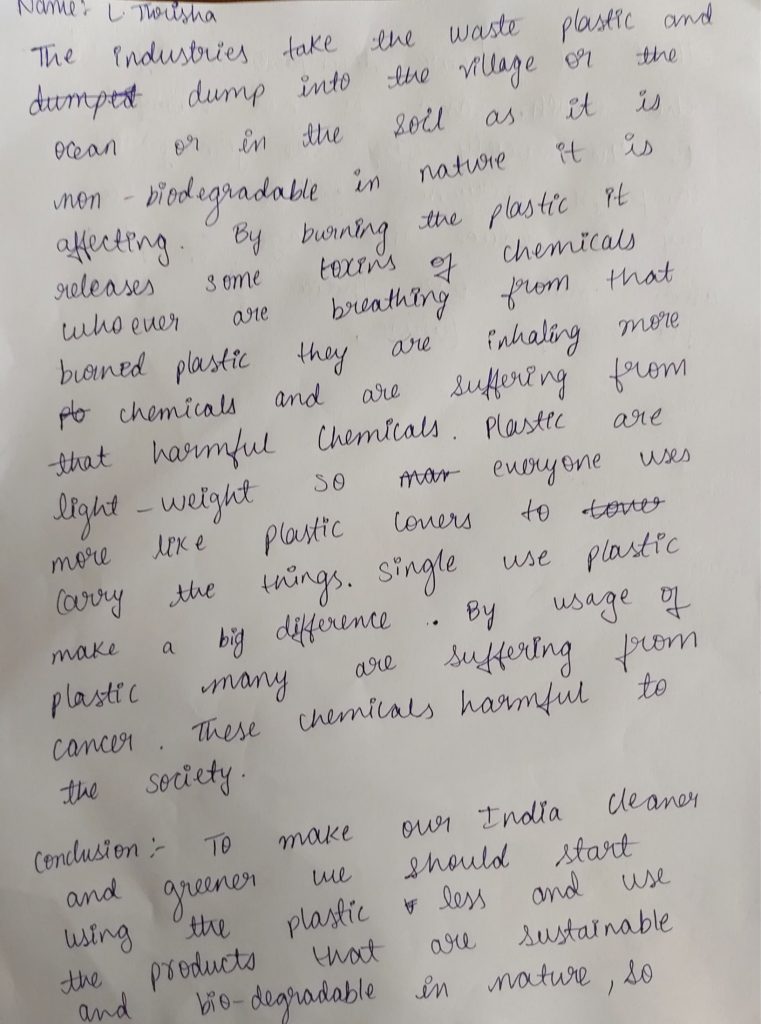 Name: L. Thrisha
The industries take the waste plastic and
dumped dump into the village or the
ocean or in the soil as it is
non-biodegradable in nature it is
affecting. By burning the plastic it
releases some toxins of chemicals
who ever are breathing from that
burned plastic they are inhaling more
pb chemicals and are suffering from
that harmful chemicals. Plastic are
light-weight so mar everyone uses
more like plastic covers to
carry the things. Single use plastic
make a big difference. By usage of
plastic many are suffering from
cancer. These chemicals harmful to
the society.
Conclusion:- To make our India cleaner
and greener we should start
using the plastic less and use
the products that are sustainable
and bio-degradable in nature, so